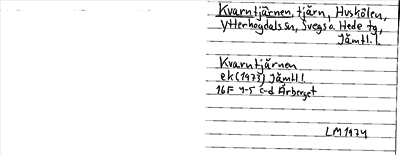 Kvarntjärnen, tjärn, Huskölen,
Ytterhogdals sn, Svegs o. Hede tg,
Jämtl. l.
Kvarntjärnen
ek (1973) Jämtl l.
16F 4-5 c-d Årberget
LM 1974